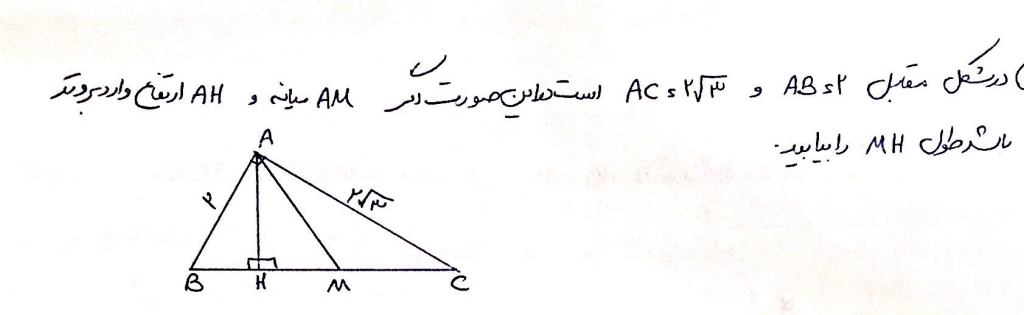 در شکل مقابل AB=۲ و AC=۲√۳ است در این صورت اگر AM میانه و AH ارتفاع وارد بر وتر
باشد طول MH را بیابید.
A
۲
۲√۳
B H M C